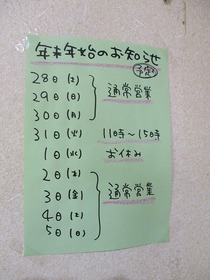 年末年始のお知らせ
予定
28日(土)
29日(日) 通常営業
30日(月)
31日(火) 11時〜15時
1日(水) お休み
2日(木)
3日(金) 通常営業
4日(土)
5日(日)